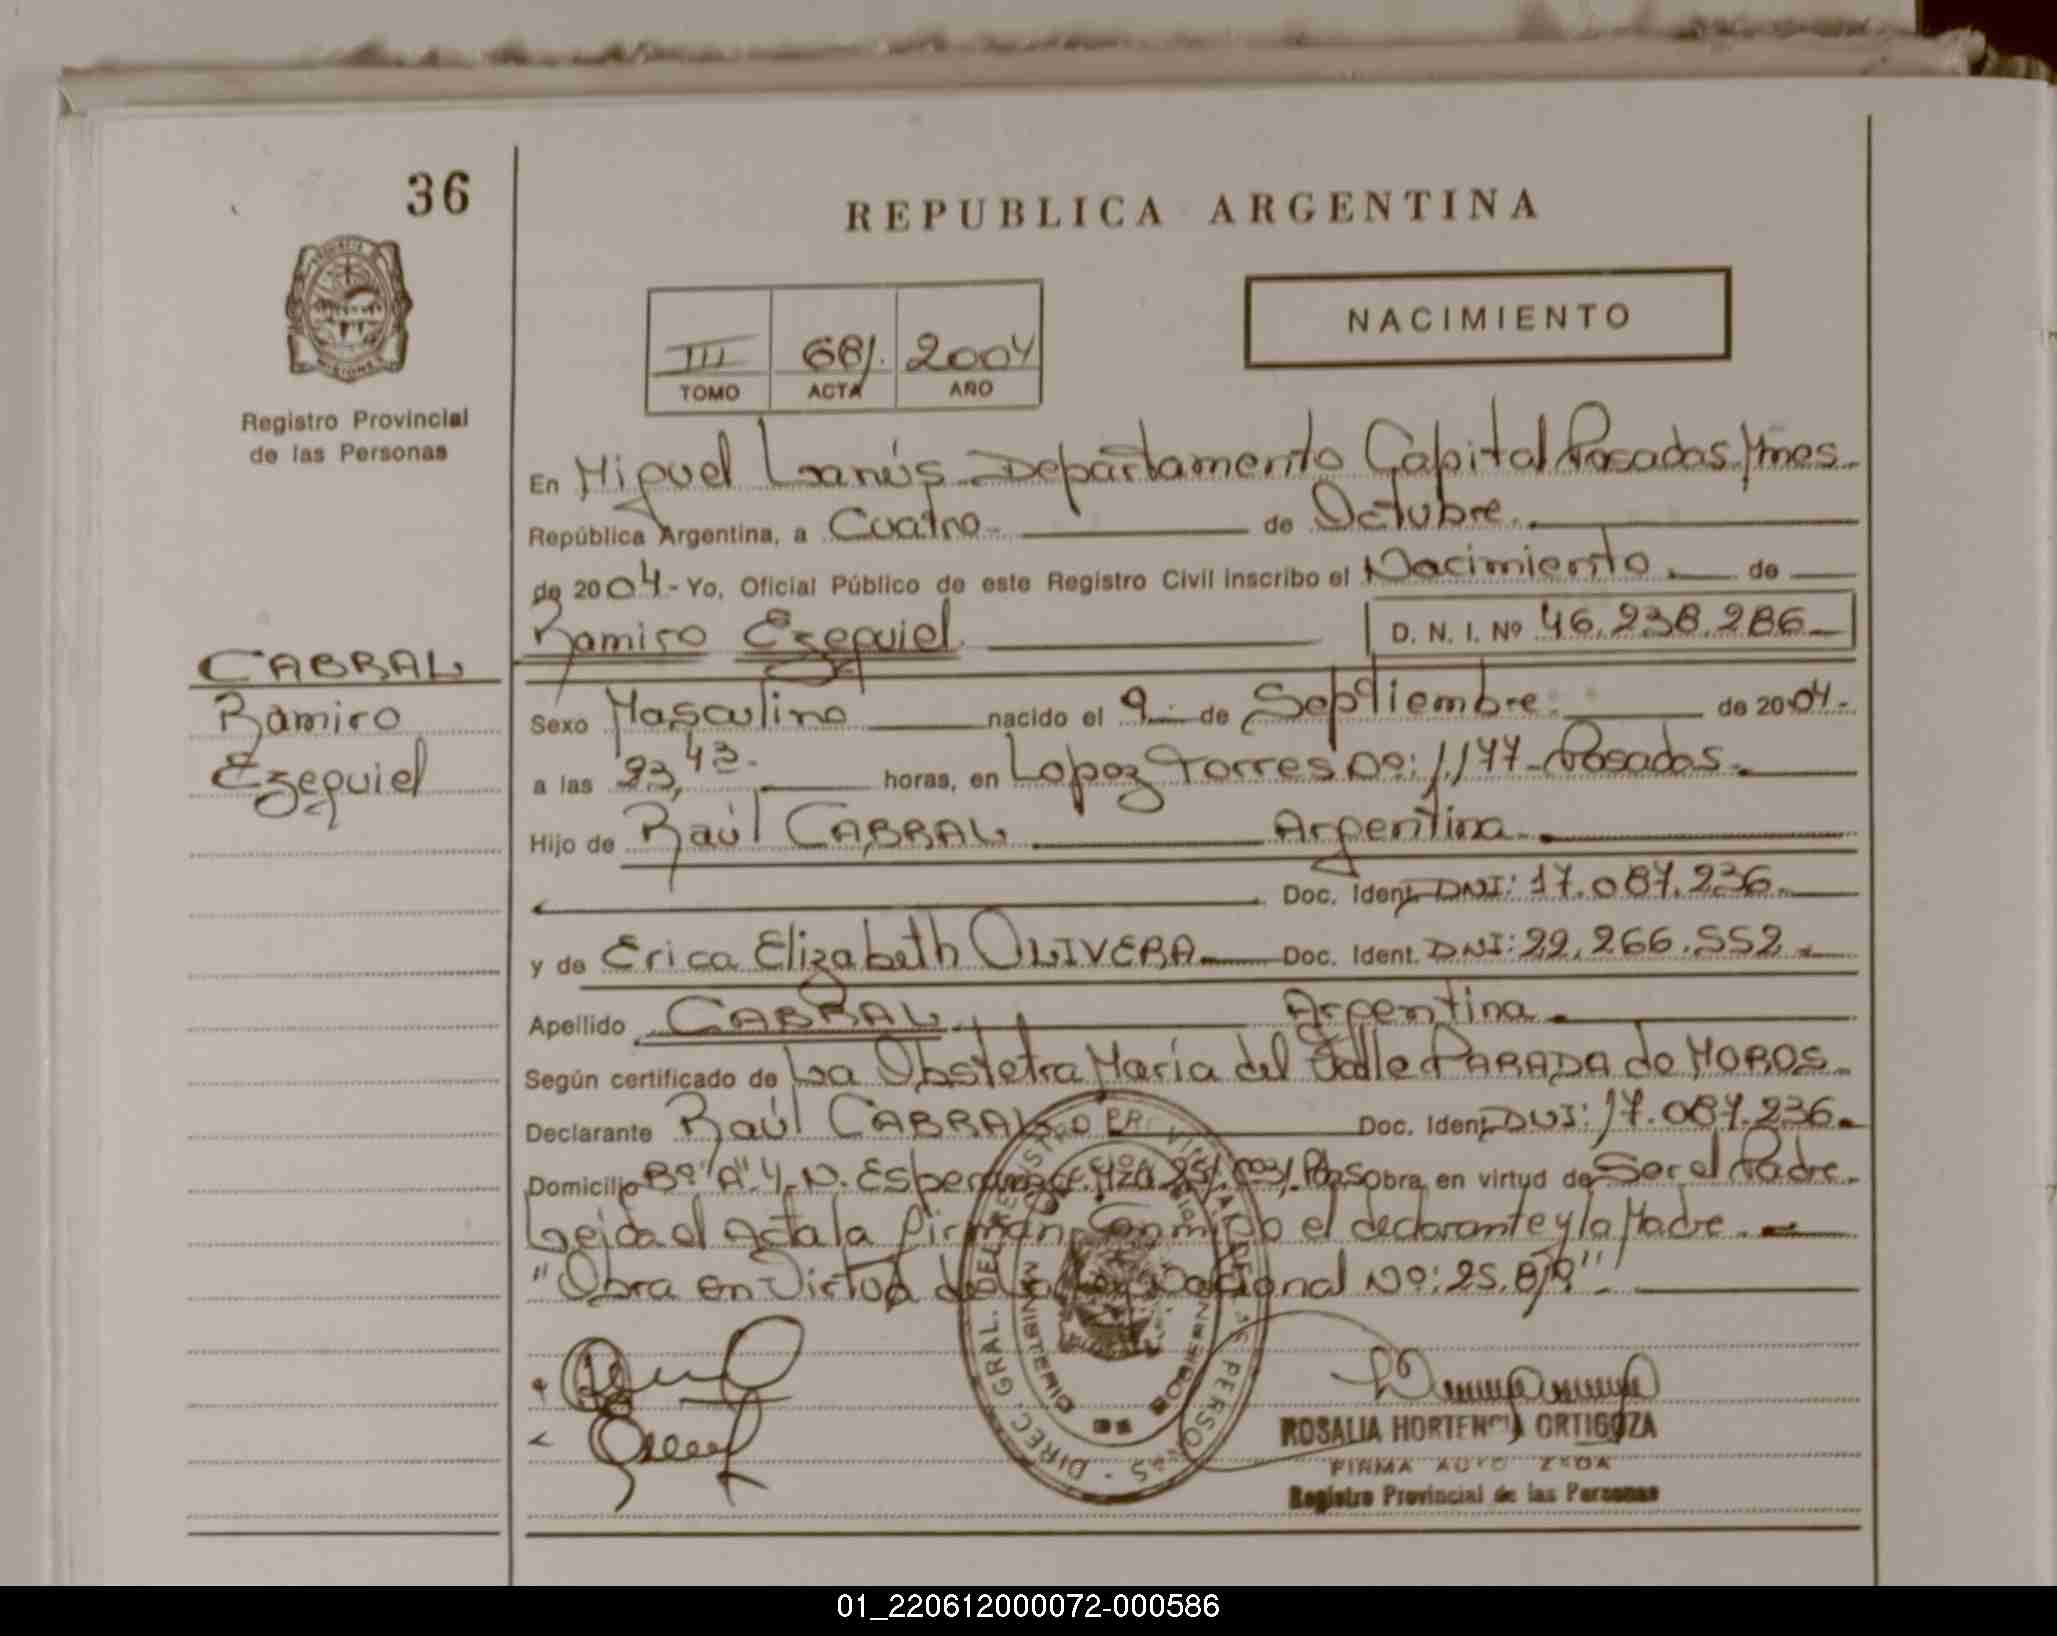 36
REPUBLICA ARGENTINA
NACIMIENTO
III 681. 2004
TOMO ACTA AÑO
MISIONES
Registro Provincial
de las Personas
En Miguel Lanús Departamento Capital Posadas Mnes.
República Argentina, a Cuatro de Octubre.
de 2004- Yo, Oficial Público de este Registro Civil inscribo el Nacimiento. de
Ramiro Ezequiel D. N. I. Nº 46.238.286
CABRAL
Ramiro
Ezequiel
Sexo Masculino nacido el 9 de Septiembre. de 2004.
a las 23,43. horas, en Lopez Torres Nº: 1.177- Posadas.
Hijo de Raúl CABRAL Argentina.
Doc. Ident. DNI: 17.087.236.
y de Erica Elizabeth OLIVERA Doc. Ident. DNI: 22.266.552.
Apellido CABRAL Argentina.
Según certificado de La Obstetra María del Valle PARADA de MOROS.
Declarante Raúl CABRAL Doc. Ident. DNI: 17.087.236.
Domicilio Bº "A" 4. N. Esperanza. Mza 25/. Pdas obra en virtud de Ser el Padre.
Leida el Acta la firman Conmigo el declarante y la Madre.
"Obra en Virtud de la Ley Nacional Nº: 25.819".
DIREC. GRAL. DEL REGISTRO PROVINCIAL DE LAS PERSONAS
MINISTERIO DE GOBIERNO
ROSALIA HORTENCIA ORTIGOZA
FIRMA AUTORIZADA
Registro Provincial de las Personas
01_220612000072-000586